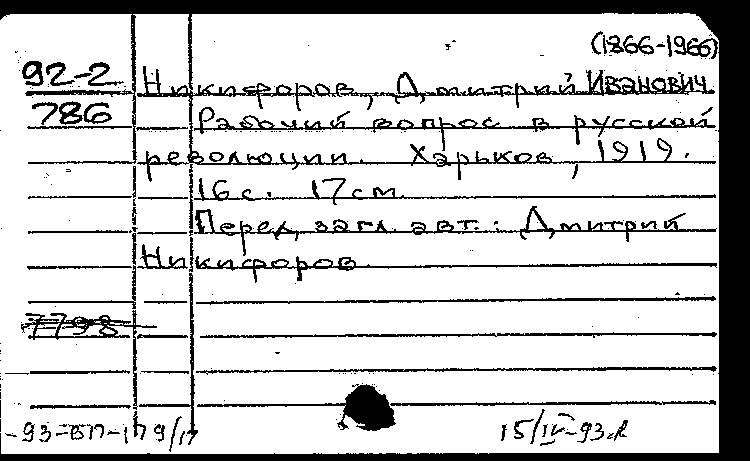 (1866-1966)
92-2
786
Никифоров, Дмитрий Иванович
Рабочий вопрос в русской
революции. Харьков, 1919.
16 с. 17 см.
Перед загл. авт.: Дмитрий
Никифоров
7798
-93-ВП-179/17
15/IV-93